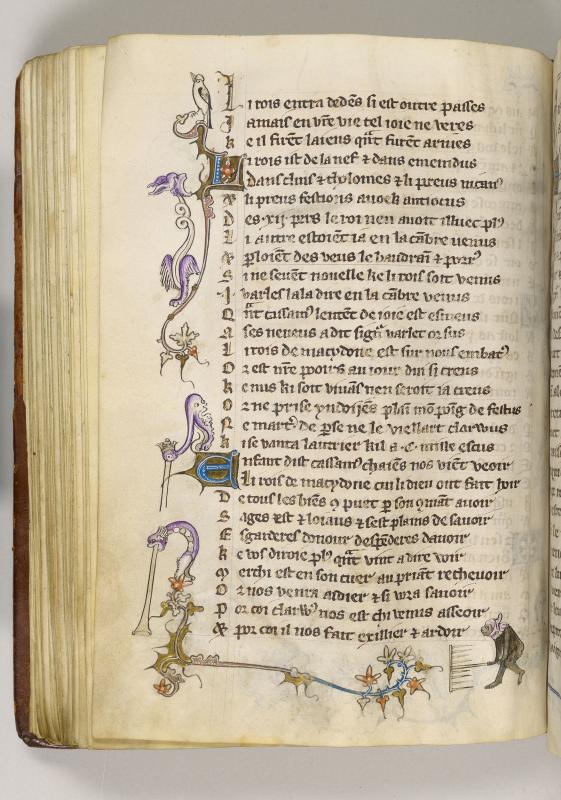 Li rois entra dedẽs si est outre passes
Jamais en vr̃e vie tel ioie ne veres
Ke il firẽt laiens qñt furẽt armes
Li rois ist de la nef & dans emenidus
Dans clins & tholomes & li preus
& li preus festions auoek antiocus
Des .xij. pers le roi nen auoit illuec plꝰ
Li autre estoiẽt ia en la cãbre venus
& ploiẽt des veus le baudraĩ & porrꝰ
Si ne seuẽt nouelle ke li rois soit venus
.I. varles lala dire en la cãbre venus
Qñt cassamꝰ lentẽt de ioie est esmeus
A ses neueus a dit signꝰ varlet or sus
Li rois de macydone est sur nous embatꝰ
Or est nr̃e pooirs au iour dui si creus
Ke nus ki soit viuãs nen seroit ia creus
Or ne prise yndoijẽs plꝰ
Ne de pse ne le viellart clarwus
Ki se vanta lautrier kil a .C. mille escus
Enfant dist cassamꝰ chaiẽs nos viẽt veoir
Li rois de macydone cui li dieu ont fait hoir
De tous les biẽs q puet p son avoir
Sages est & loiaus & sest plains de sauoir
Esgarderes donour despẽderes dauoir
Ke vos diroie plꝰ qñt vint a dire voir
Merchi est en son cuer au priant recheuoir
Or nos venra aidier & si vora sauoir
Por coi clarwꝰ nos est chi venus asseoir
& por coi il nos fait exillier & ardoir